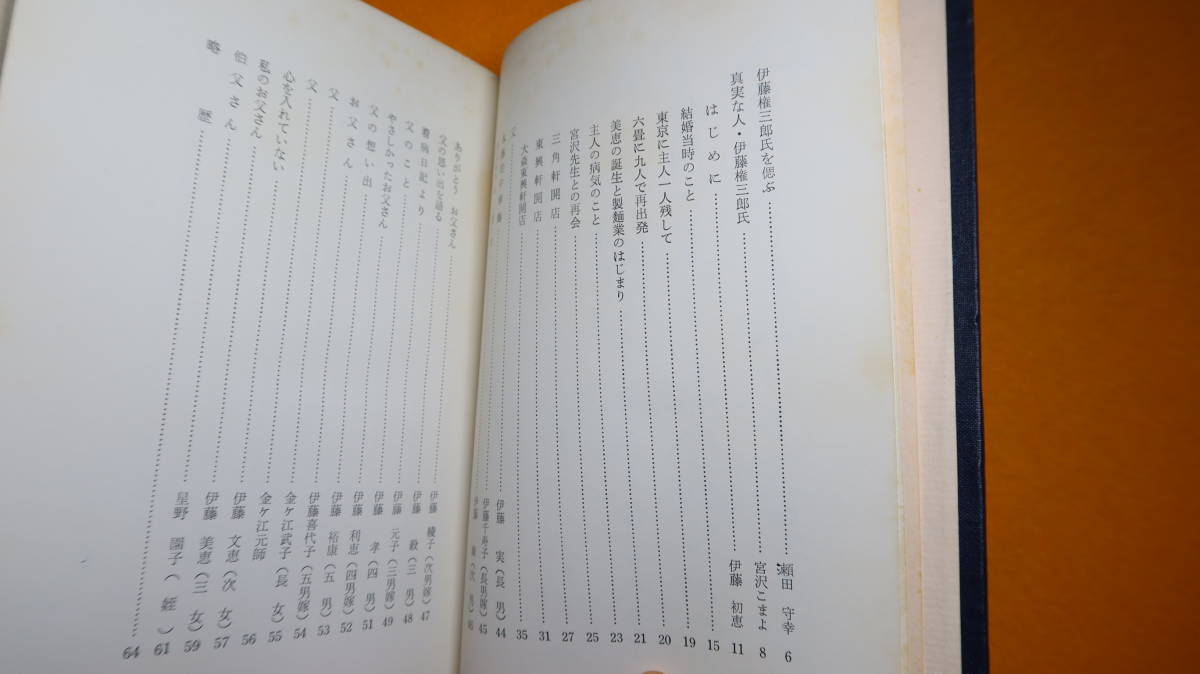 伊藤権三郎氏を偲ぶ…………田 守幸 6
真実な人・伊藤権三郎氏…………宮沢こまよ 8
はじめに…………伊藤 初恵 11
結婚当時のこと…………15
東京に主人一人残して…………19
六畳に九人で再出発…………20
美恵の誕生と製麵業のはじまり…………21
主人の病気のこと…………23
宮沢先生との再会…………25
三角軒開店…………27
東興軒開店…………31
大森東興軒開店…………35
父…………伊藤 実(長男)44
…………伊藤千寿子(長男嫁)45
…………伊藤 (次男)46
ありがとう お父さん…………伊藤 綾子(次男嫁)47
父の思い出を語る…………伊藤 毅(三男)48
看病日記より…………伊藤 元子(三男嫁)49
父のこと…………伊藤 孝(四男)51
やさしかったお父さん…………伊藤 利恵(四男嫁)52
父の想い出…………伊藤 裕康(五男)53
お父さん…………伊藤喜代子(五男嫁)54
父…………金ケ江武子(長女)55
父…………金ケ江元師 56
心を入れていない…………伊藤 文恵(次女)57
私のお父さん…………伊藤 美恵(三女)59
伯父さん…………星野 子(姪)61
略歴…………64